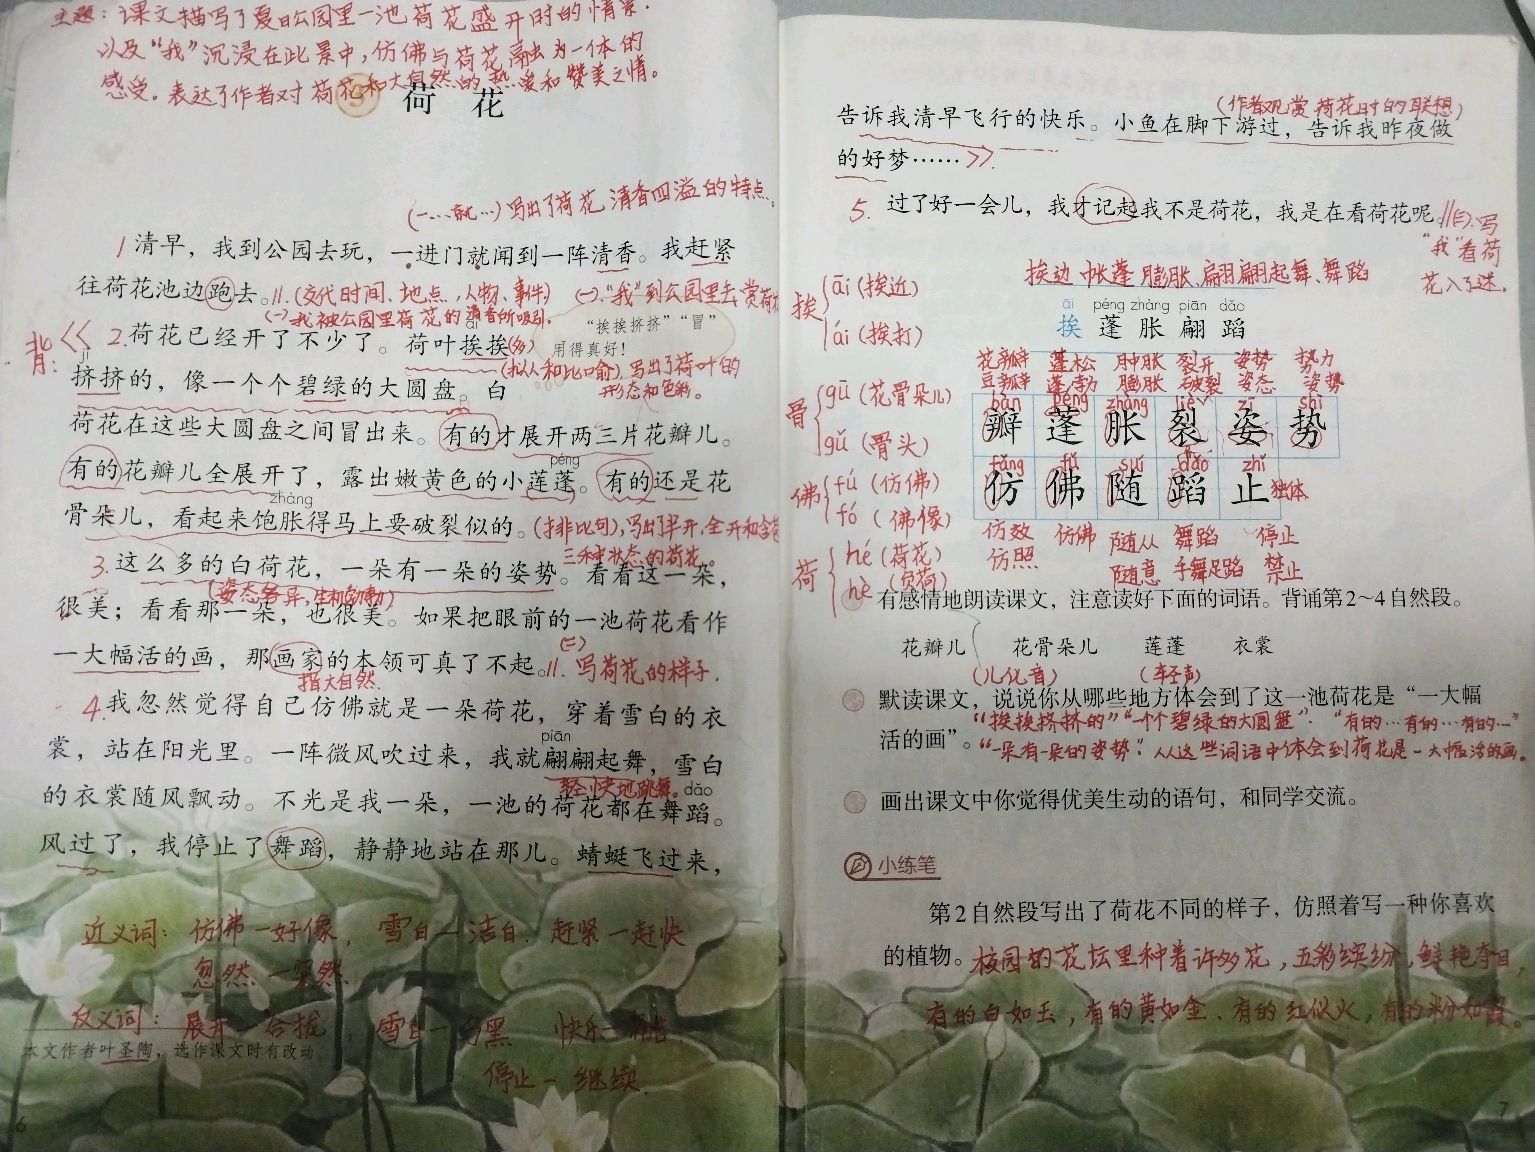 主题：课文描写了夏日公园里一池荷花盛开时的情景.
以及“我”沉浸在此景中，仿佛与荷花融为一体的
感受。表达了作者对荷花和大自然的热爱和赞美之情。
3 荷花
(一…就…)写出了荷花清香四溢的特点。
1 清早，我到公园去玩，一进门就闻到一阵清香。我赶紧
往荷花池边跑去。//.(交代时间、地点、人物、事件)
(一)“我”到公园里去赏荷花
(一)我被公园里荷花的清香所吸引。
“挨挨挤挤”“冒”
用得真好！
背：
āi
2.荷花已经开了不少了。荷叶挨挨(多)
(拟人和比喻)写出了荷叶的
形态和色彩。
jǐ
挤挤的，像一个个碧绿的大圆盘。白
荷花在这些大圆盘之间冒出来。有的才展开两三片花瓣儿。
péng
有的花瓣儿全展开了，露出嫩黄色的小莲蓬。有的还是花
zhàng
骨朵儿，看起来饱胀得马上要破裂似的。(排比句),写出了半开、全开和含苞
三种状态的荷花。
3.这么多的白荷花，一朵有一朵的姿势。看看这一朵，
(姿态各异，生机勃勃)
很美；看看那一朵，也很美。如果把眼前的一池荷花看作
一大幅活的画，那画家的本领可真了不起。//.(二)写荷花的样子.
指大自然.
4.我忽然觉得自己仿佛就是一朵荷花，穿着雪白的衣
piān
裳，站在阳光里。一阵微风吹过来，我就翩翩起舞，雪白
轻快地跳舞。dǎo
的衣裳随风飘动。不光是我一朵，一池的荷花都在舞蹈。
风过了，我停止了舞蹈，静静地站在那儿。蜻蜓飞过来，
近义词：仿佛一好像，雪白一洁白.赶紧一赶快
忽然一突然
反义词：展开一合拢，雪白一乌黑 快乐一痛苦.
本文作者叶圣陶，选作课文时有改动。
停止一继续.
6
(作者观赏荷花时的联想)
告诉我清早飞行的快乐。小鱼在脚下游过，告诉我昨夜做
的好梦……
5. 过了好一会儿，我才记起我不是荷花，我是在看荷花呢。//(三).写
“我”看荷
花入了迷。
挨边 帐蓬 膨胀、翩翩起舞、舞蹈
挨 āi (挨近)
ái (挨打)
āi péng zhàng piān dǎo
挨 蓬 胀 翩 蹈
花瓣 蓬松 肿胀 裂开 姿势 势力
豆瓣 蓬勃 膨胀 破裂 姿态 姿势
骨 gū (花骨朵儿)
gǔ (骨头)
bàn péng zhàng liè zī shì
瓣 蓬 胀 裂 姿 势
fǎng fú suí dǎo zhǐ
仿 佛 随 蹈 止 独体
佛 fú (仿佛)
fó (佛像)
仿效 仿佛 随从 舞蹈 停止
仿照 随意 手舞足蹈 禁止
荷 hé (荷花)
hè (负荷)
有感情地朗读课文，注意读好下面的词语。背诵第2～4自然段。
花瓣儿 花骨朵儿 莲蓬 衣裳
(儿化音) (轻声)
默读课文，说说你从哪些地方体会到了这一池荷花是“一大幅
“挨挨挤挤的”“一个个碧绿的大圆盘”.“有的…有的…有的…”
活的画”。“一朵有一朵的姿势”.从这些词语中体会到荷花是一大幅活的画。
画出课文中你觉得优美生动的语句，和同学交流。
小练笔
第2自然段写出了荷花不同的样子，仿照着写一种你喜欢
的植物。校园的花坛里种着许多花，五彩缤纷，鲜艳夺目，
有的白如玉，有的黄如金.有的红似火，有的粉如霞。
7